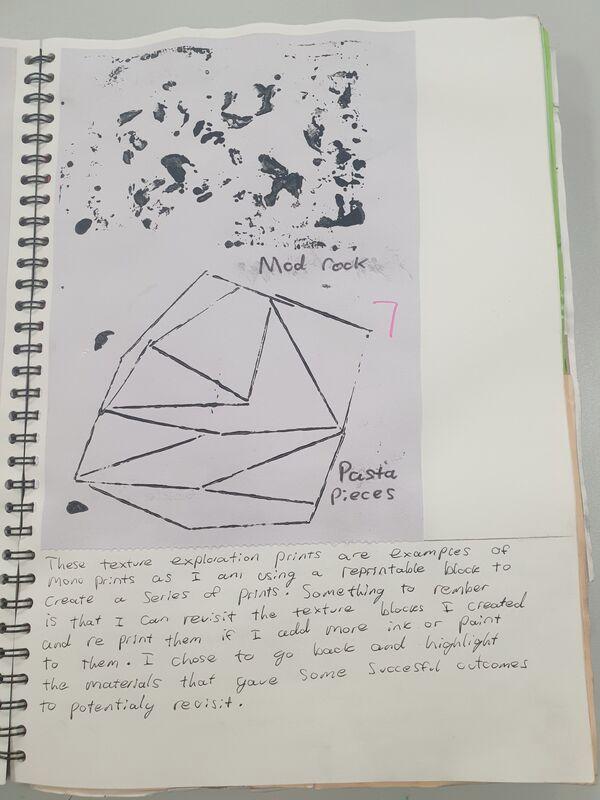 Mod rock
7
Pasta
Pieces
These texture exploration prints are examples of
mono prints as I am using a reprintable block to
create a series of prints. Something to rember
is that I can revisit the texture blocks I created
and re print them if I add more ink or paint
to them. I chose to go back and highlight
the materials that gave some succesful outcomes
to potentialy revisit.